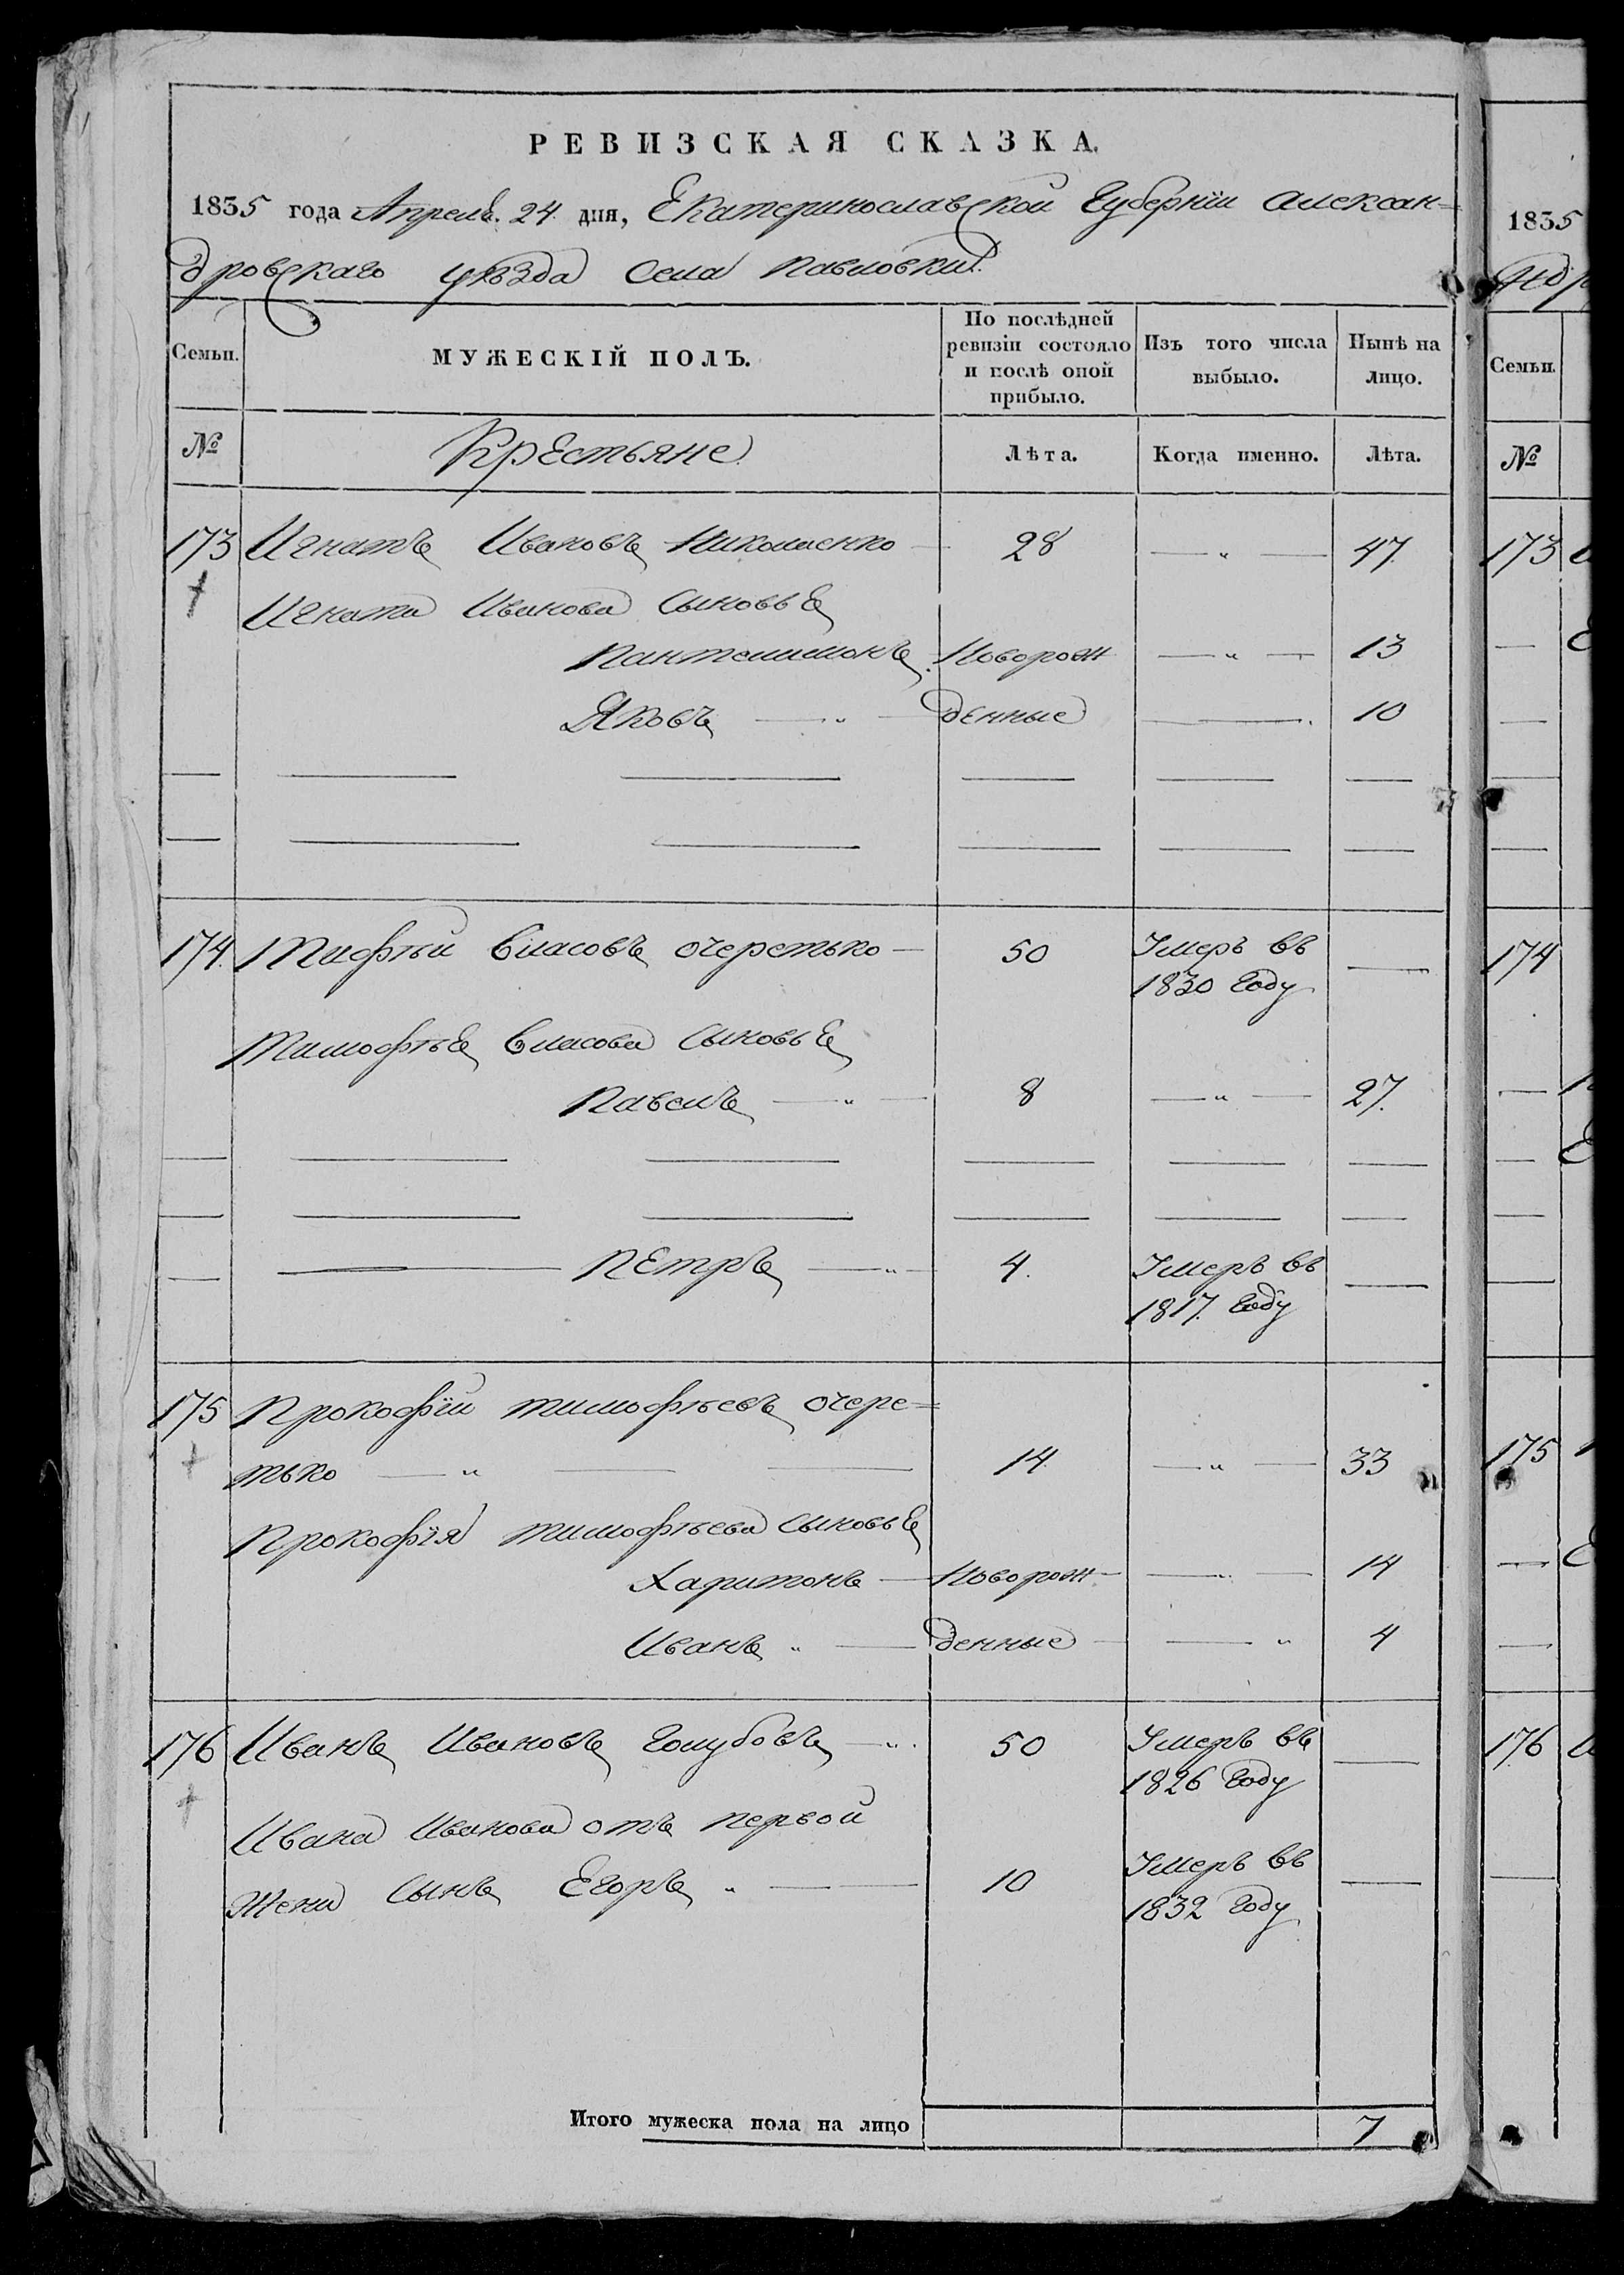 РЕВИЗСКАЯ СКАЗКА.
1835 года Апреля 24 дня, Екатеринославской Губернїи Алексан=
дровскаго уѣзда Села Павловки
Семьи. МУЖЕСКІЙ ПОЛЪ. По послѣдней ревизіи состояло и послѣ оной прибыло. Изъ того числа выбыло. Нынѣ на лицо.
№ Крестьяне Лѣта. Когда именно. Лѣта.
173 Игнатъ Ивановъ Николаенко — 28 — " — 47
Игната Иванова Сыновье
Пантелимонъ Новорож — " — 13
Яковъ — " — денные — 10
174. Тиофѣй Власовъ Очеретько — 50 Умеръ въ —
1830 Году
Тимофѣе Власова Сыновье
Павелъ — " — 8 — " — 27.
— Петръ — " — 4. Умеръ въ —
1817. Году
175 Прокофїй Тимофѣевъ Очере=
тько — " — 14 — " — 33
Прокофїя Тимофѣева Сыновье
Харитонъ — Новорож — " — 14
Иванъ " — денные — " 4
176 Иванъ Ивановъ Голубовъ — " 50 Умеръ въ —
1826 Году
Ивана Иванова отъ первой
жени Сынъ Егоръ " — 10 Умеръ въ —
1832 Году
Итого мужеска пола на лицо 7
1835
Семьи.
№
173
174
175
176